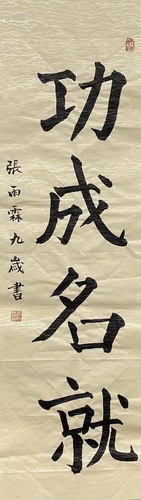 功成名就
張雨霖九歲書